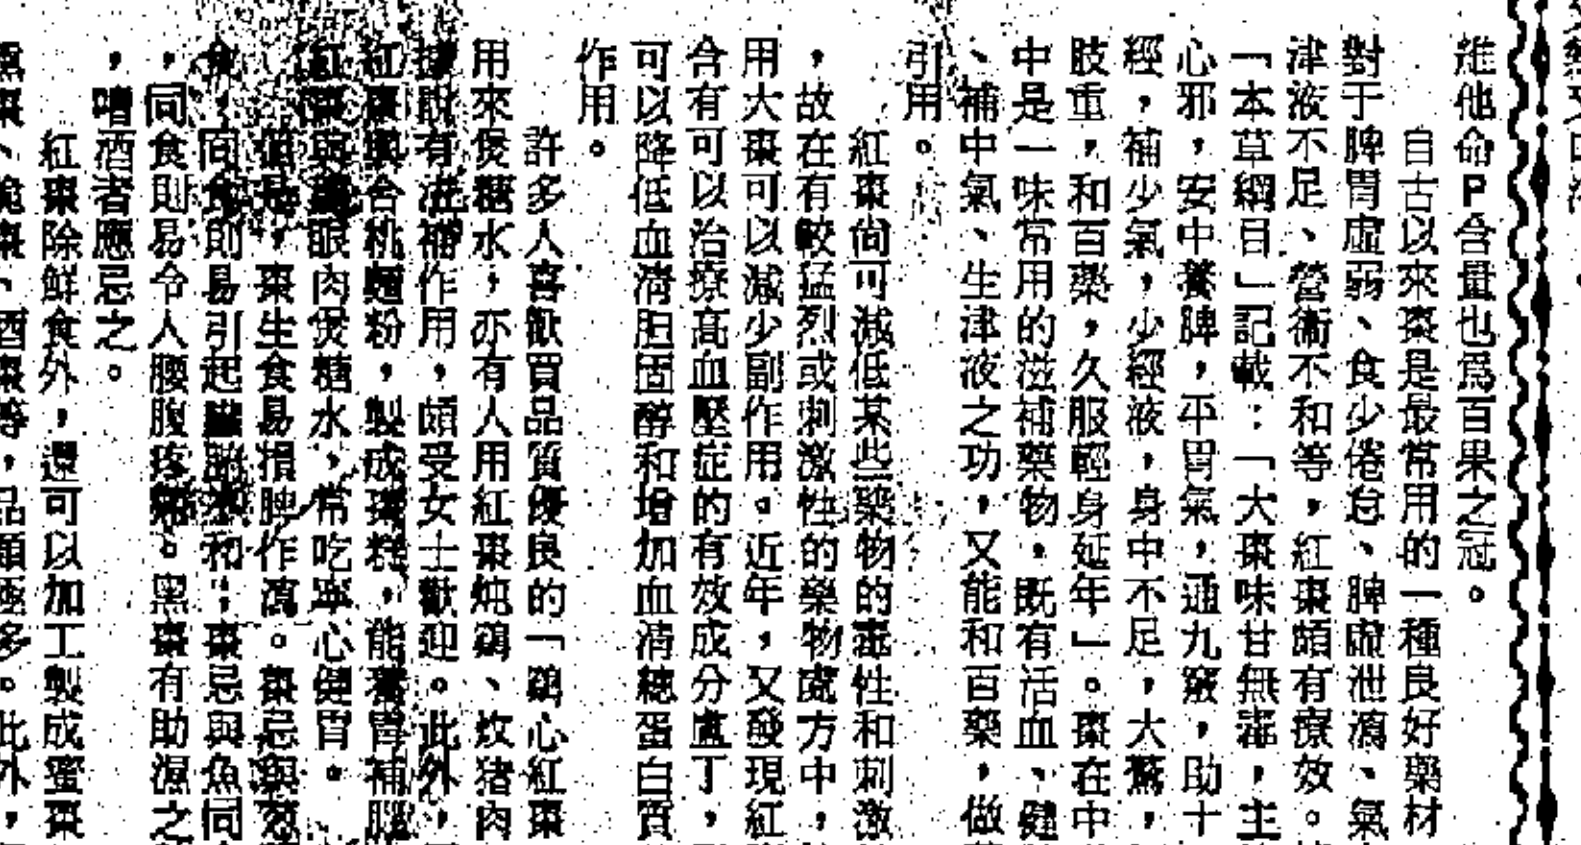 維他命P含量也爲百果之冠。
自古以來棗是最常用的一種良好藥材
對于脾胃虛弱、食少倦怠、脾虛泄瀉、氣
津液不足、營衞不和等，紅棗頗有療效。
「本草綱目」記載：「大棗味甘無毒，主
心邪，安中養脾，平胃氣，通九竅，助十
經，補少氣，少經液，身中不足，大驚，
肢重，和百藥，久服輕身延年」。棗在中
中是一味常用的滋補藥物，既有活血、健
、補中氣、生津液之功，又能和百藥，做
引用。
紅棗尙可減低某些藥物的毒性和刺激
，故在有較猛烈或刺激性的藥物處方中，
用大棗可以減少副作用。近年，又發現紅
含有可以治療高血壓症的有效成分盧丁，
可以降低血清胆固醇和增加血清總蛋白質
作用。
許多人喜歡買品質優良的「鷄心紅棗
用來煲糖水，亦有人用紅棗炖鷄、炆猪肉
據說有滋補作用，頗受女士歡迎。此外，
紅棗與合桃麵粉，製成棗糕，能養胃補腦
紅棗與龍眼肉煲糖水，常吃寧心健胃。
但是，棗生食易損脾作瀉。棗忌與葱
食，同食則易引起臟腑不和；棗忌與魚同
，同食則易令人腰腹疼痛。黑棗有助濕之
，嗜酒者應忌之。
紅棗除鮮食外，還可以加工製成蜜棗
棗、酒棗等，品類極多。此外，